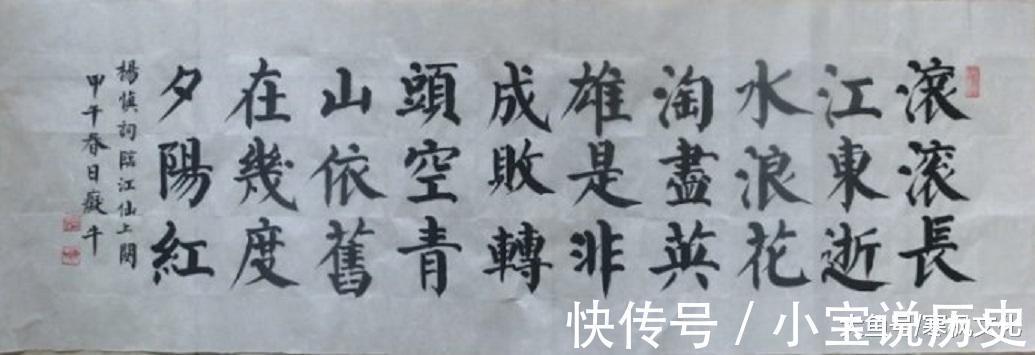 滾滚長
江東逝
水浪花
淘盡英
雄是非
成敗轉
頭空青
山依舊
在幾度
夕陽紅
楊慎詞臨江仙上闋
甲午春日癡牛
快传号/小宝说历史
大鱼号/寒枫文化